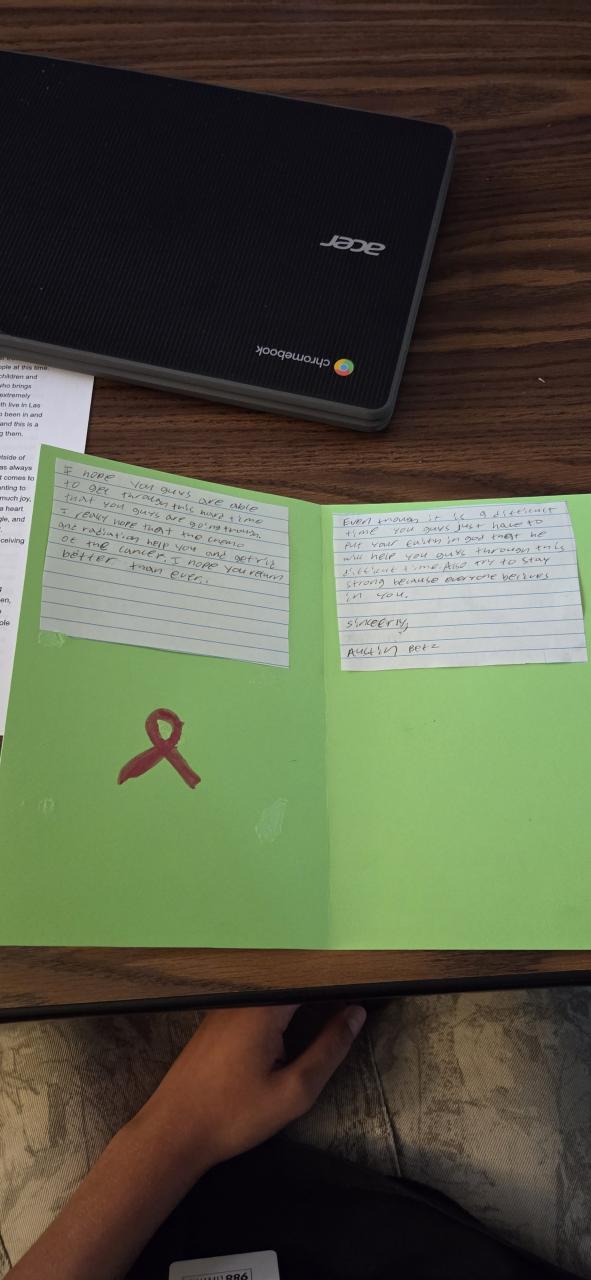 acer
chromebook
ople at this time.
children and
who brings
extremely
th live in Las
been in and
and this is a
g them.
tside of
as always
t comes to
nting to
much joy,
a heart
gle, and
ceiving
en,
ole
I hope you guys are able
to get through this hard time
that you guys are going through.
I really hope that the chemo
and radiation help you and get rid
of the cancer. I hope you return
better than ever.
Even though it is a difficult
time you guys just have to
put your faith in god that he
will help you guys through this
difficult time. Also try to stay
strong because everyone believes
in you.
sinceerly,
Austin Betz